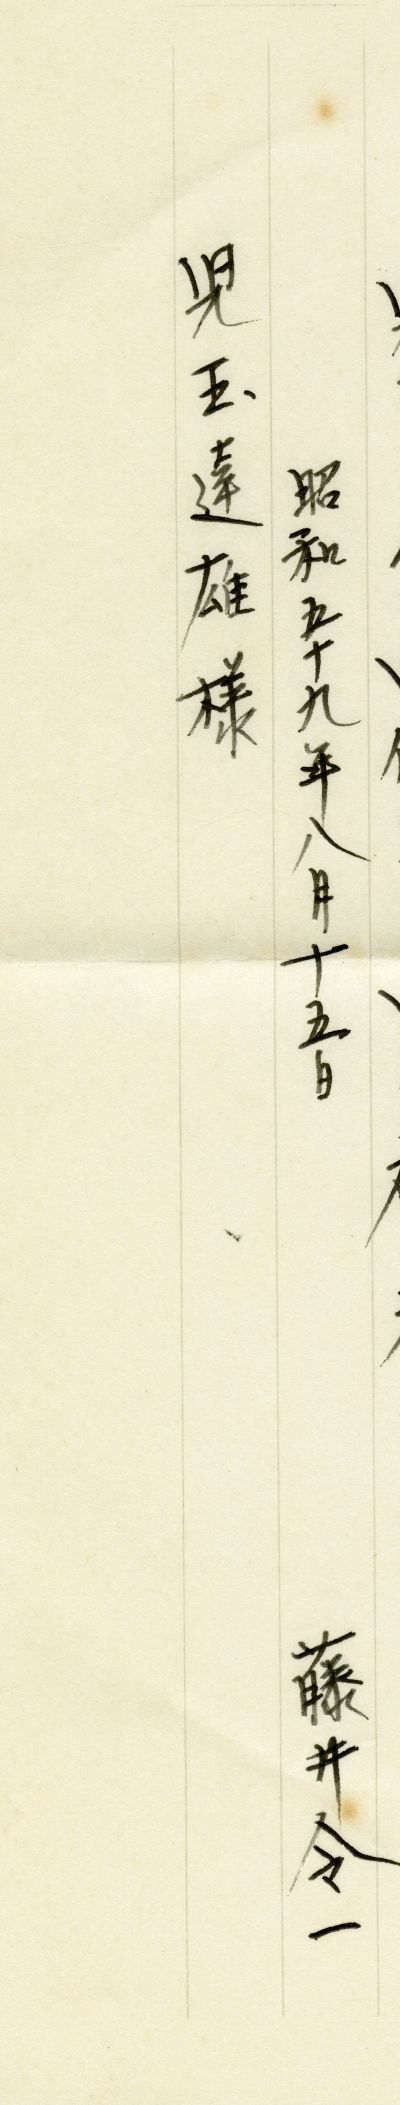 昭和五十九年八月十五日
藤井令一
児玉達雄様